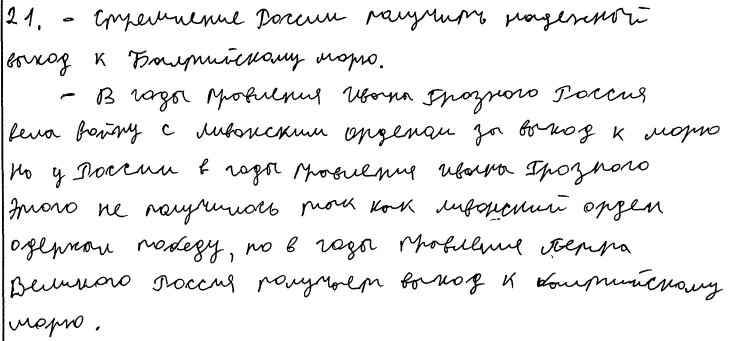 21. - Стремление России получить надежный
выход к Балтийскому морю.
- В годы правления Ивана Грозного Россия
вела войну с ливонским орденом за выход к морю
Но у России в годы правления ивана Грозного
Этого не получилось так как ливонский орден
одержал победу, но в годы правления Петра
Великого Россия получает выход к балтийскому
морю.